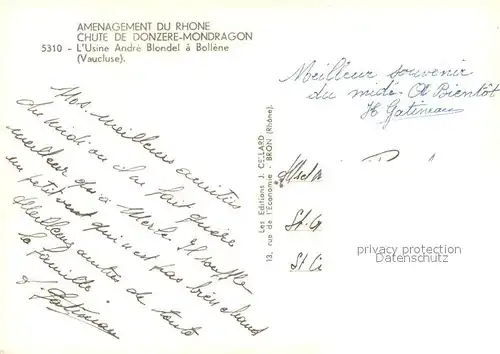 AMENAGEMENT DU RHONE
CHUTE DE DONZERE-MONDRAGON
5310 - L'Usine André Blondel à Bollène
(Vaucluse).
Nos meilleurs amitiés
du midi ou il ne fait guère
meilleur qu'à Merle. Il souffle
un petit vent qui n'est pas bien chaud
Meilleurs amitiés de toute
la famille
J. Gatineau
Les Editions J. CELLARD
13, rue de l'Economie - BRON (Rhône).
Meilleur souvenir
du midi. A Bientôt
H Gatineau
St
St
privacy protection
www.oldthing.de